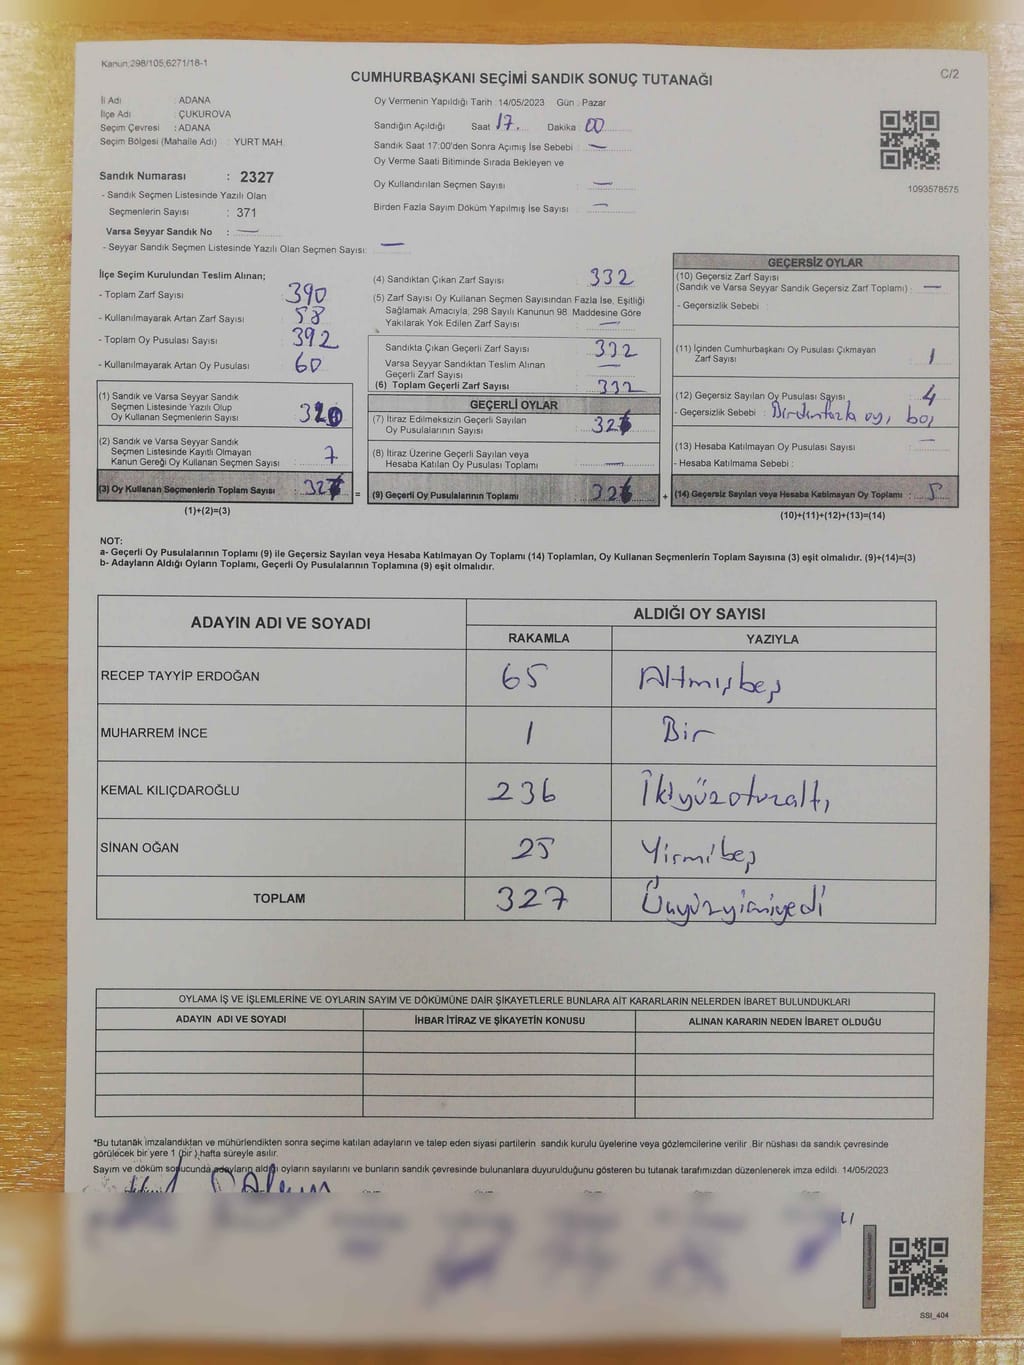 Kanun:298/105,6271/18-1
C/2
CUMHURBAŞKANI SEÇİMİ SANDIK SONUÇ TUTANAĞI
İl Adı : ADANA
İlçe Adı : ÇUKUROVA
Seçim Çevresi : ADANA
Seçim Bölgesi (Mahalle Adı) : YURT MAH.
Sandık Numarası : 2327
- Sandık Seçmen Listesinde Yazılı Olan
Seçmenlerin Sayısı : 371
Varsa Seyyar Sandık No : —
- Seyyar Sandık Seçmen Listesinde Yazılı Olan Seçmen Sayısı: —
Oy Vermenin Yapıldığı Tarih : 14/05/2023 Gün : Pazar
Sandığın Açıldığı Saat 17. Dakika : 00
Sandık Saat 17:00'den Sonra Açımış İse Sebebi : —
Oy Verme Saati Bitiminde Sırada Bekleyen ve
Oy Kullandırılan Seçmen Sayısı : —
Birden Fazla Sayım Döküm Yapılmış İse Sayısı : —
1093578575
İlçe Seçim Kurulundan Teslim Alınan;
- Toplam Zarf Sayısı 390
- Kullanılmayarak Artan Zarf Sayısı : 58
- Toplam Oy Pusulası Sayısı : 392
- Kullanılmayarak Artan Oy Pusulası : 60
(1) Sandık ve Varsa Seyyar Sandık
Seçmen Listesinde Yazılı Olup
Oy Kullanan Seçmenlerin Sayısı :
(2) Sandık ve Varsa Seyyar Sandık
Seçmen Listesinde Kayıtlı Olmayan
Kanun Gereği Oy Kullanan Seçmen Sayısı : 7
(3) Oy Kullanan Seçmenlerin Toplam Sayısı : =
(1)+(2)=(3)
(4) Sandıktan Çıkan Zarf Sayısı : 332
(5) Zarf Sayısı Oy Kullanan Seçmen Sayısından Fazla İse, Eşitliği
Sağlamak Amacıyla, 298 Sayılı Kanunun 98 Maddesine Göre
Yakılarak Yok Edilen Zarf Sayısı : —
Sandıkta Çıkan Geçerli Zarf Sayısı : 332
Varsa Seyyar Sandıktan Teslim Alınan
Geçerli Zarf Sayısı : —
(6) Toplam Geçerli Zarf Sayısı : 332
GEÇERLİ OYLAR
(7) İtiraz Edilmeksizin Geçerli Sayılan
Oy Pusulalarının Sayısı :
(8) İtiraz Üzerine Geçerli Sayılan veya
Hesaba Katılan Oy Pusulası Toplamı : —
(9) Geçerli Oy Pusulalarının Toplamı : +
GEÇERSİZ OYLAR
(10) Geçersiz Zarf Sayısı
(Sandık ve Varsa Seyyar Sandık Geçersiz Zarf Toplamı) : —
- Geçersizlik Sebebi :
(11) İçinden Cumhurbaşkanı Oy Pusulası Çıkmayan
Zarf Sayısı : 1
(12) Geçersiz Sayılan Oy Pusulası Sayısı : 4
- Geçersizlik Sebebi : Birdenfazla oy, boş
(13) Hesaba Katılmayan Oy Pusulası Sayısı : —
- Hesaba Katılmama Sebebi :
(14) Geçersiz Sayılan veya Hesaba Katılmayan Oy Toplamı : 5
(10)+(11)+(12)+(13)=(14)
NOT:
a- Geçerli Oy Pusulalarının Toplamı (9) ile Geçersiz Sayılan veya Hesaba Katılmayan Oy Toplamı (14) Toplamları, Oy Kullanan Seçmenlerin Toplam Sayısına (3) eşit olmalıdır. (9)+(14)=(3)
b- Adayların Aldığı Oyların Toplamı, Geçerli Oy Pusulalarının Toplamına (9) eşit olmalıdır.
ADAYIN ADI VE SOYADI ALDIĞI OY SAYISI
RAKAMLA YAZIYLA
RECEP TAYYİP ERDOĞAN 65 Altmışbeş
MUHARREM İNCE 1 Bir
KEMAL KILIÇDAROĞLU 236 İkiyüzotuzaltı
SİNAN OĞAN 25 Yirmibeş
TOPLAM 327 Üçyüzyirmiyedi
OYLAMA İŞ VE İŞLEMLERİNE VE OYLARIN SAYIM VE DÖKÜMÜNE DAİR ŞİKAYETLERLE BUNLARA AİT KARARLARIN NELERDEN İBARET BULUNDUKLARI
ADAYIN ADI VE SOYADI İHBAR İTİRAZ VE ŞİKAYETİN KONUSU ALINAN KARARIN NEDEN İBARET OLDUĞU
*Bu tutanak imzalandıktan ve mühürlendikten sonra seçime katılan adayların ve talep eden siyasi partilerin sandık kurulu üyelerine veya gözlemcilerine verilir. Bir nüshası da sandık çevresinde
görülecek bir yere 1 (bir ) hafta süreyle asılır.
Sayım ve döküm sonucunda adayların aldığı oyların sayılarını ve bunların sandık çevresinde bulunanlara duyurulduğunu gösteren bu tutanak tarafımızdan düzenlenerek imza edildi. 14/05/2023
SSI_404